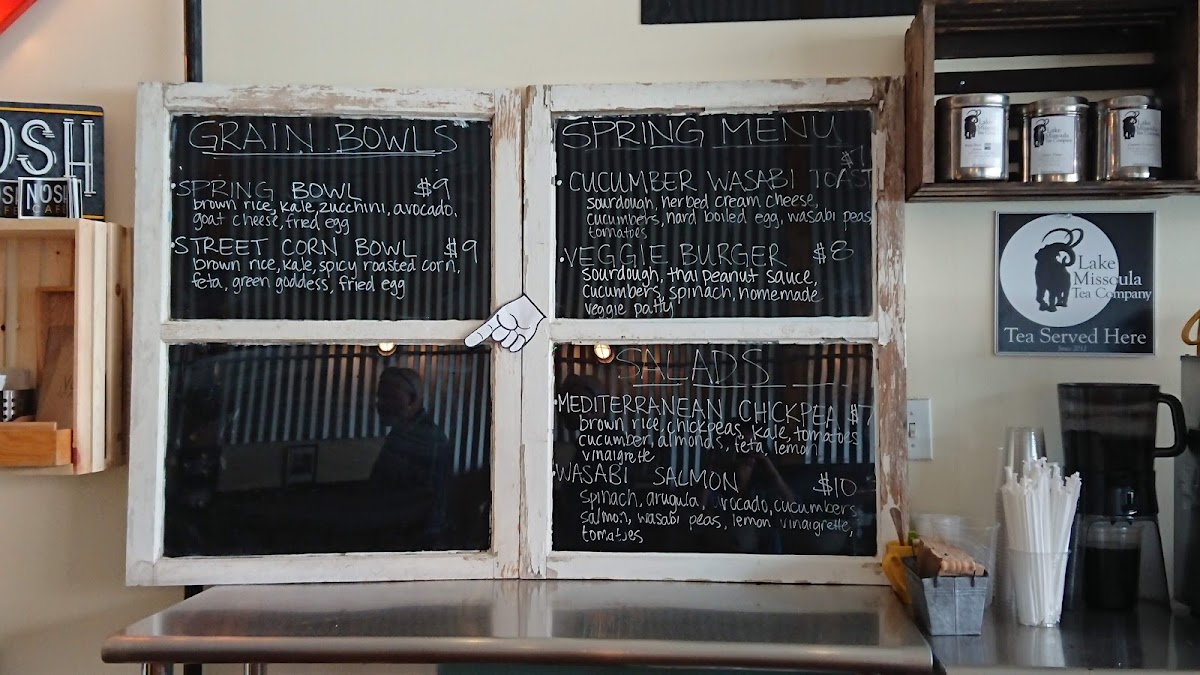 OSH
NOSH
CAFE
GRAIN BOWLS
• SPRING BOWL $9
brown rice, kale, zucchini, avocado,
goat cheese, fried egg
• STREET CORN BOWL $9
brown rice, kale, spicy roasted corn,
feta, green goddess, fried egg
SPRING MENU
$7
• CUCUMBER WASABI TOAST
sourdough, herbed cream cheese,
cucumbers, hard boiled egg, wasabi peas,
tomatoes
• VEGGIE BURGER $8
sourdough, thai peanut sauce,
cucumbers, spinach, homemade
veggie patty
SALADS
• MEDITERRANEAN CHICKPEA $7
brown rice, chickpeas, kale, tomatoes
cucumber, almonds, feta, lemon
vinaigrette
• WASABI SALMON $10
spinach, arugula, avocado, cucumbers
salmon, wasabi peas, lemon vinaigrette,
tomatoes
Lake
Missoula
Tea Company
Lake
Missoula
Tea Company
Lake
Missoula
Tea Company
Lake
Missoula
Tea Company
Tea Served Here
Since 2012